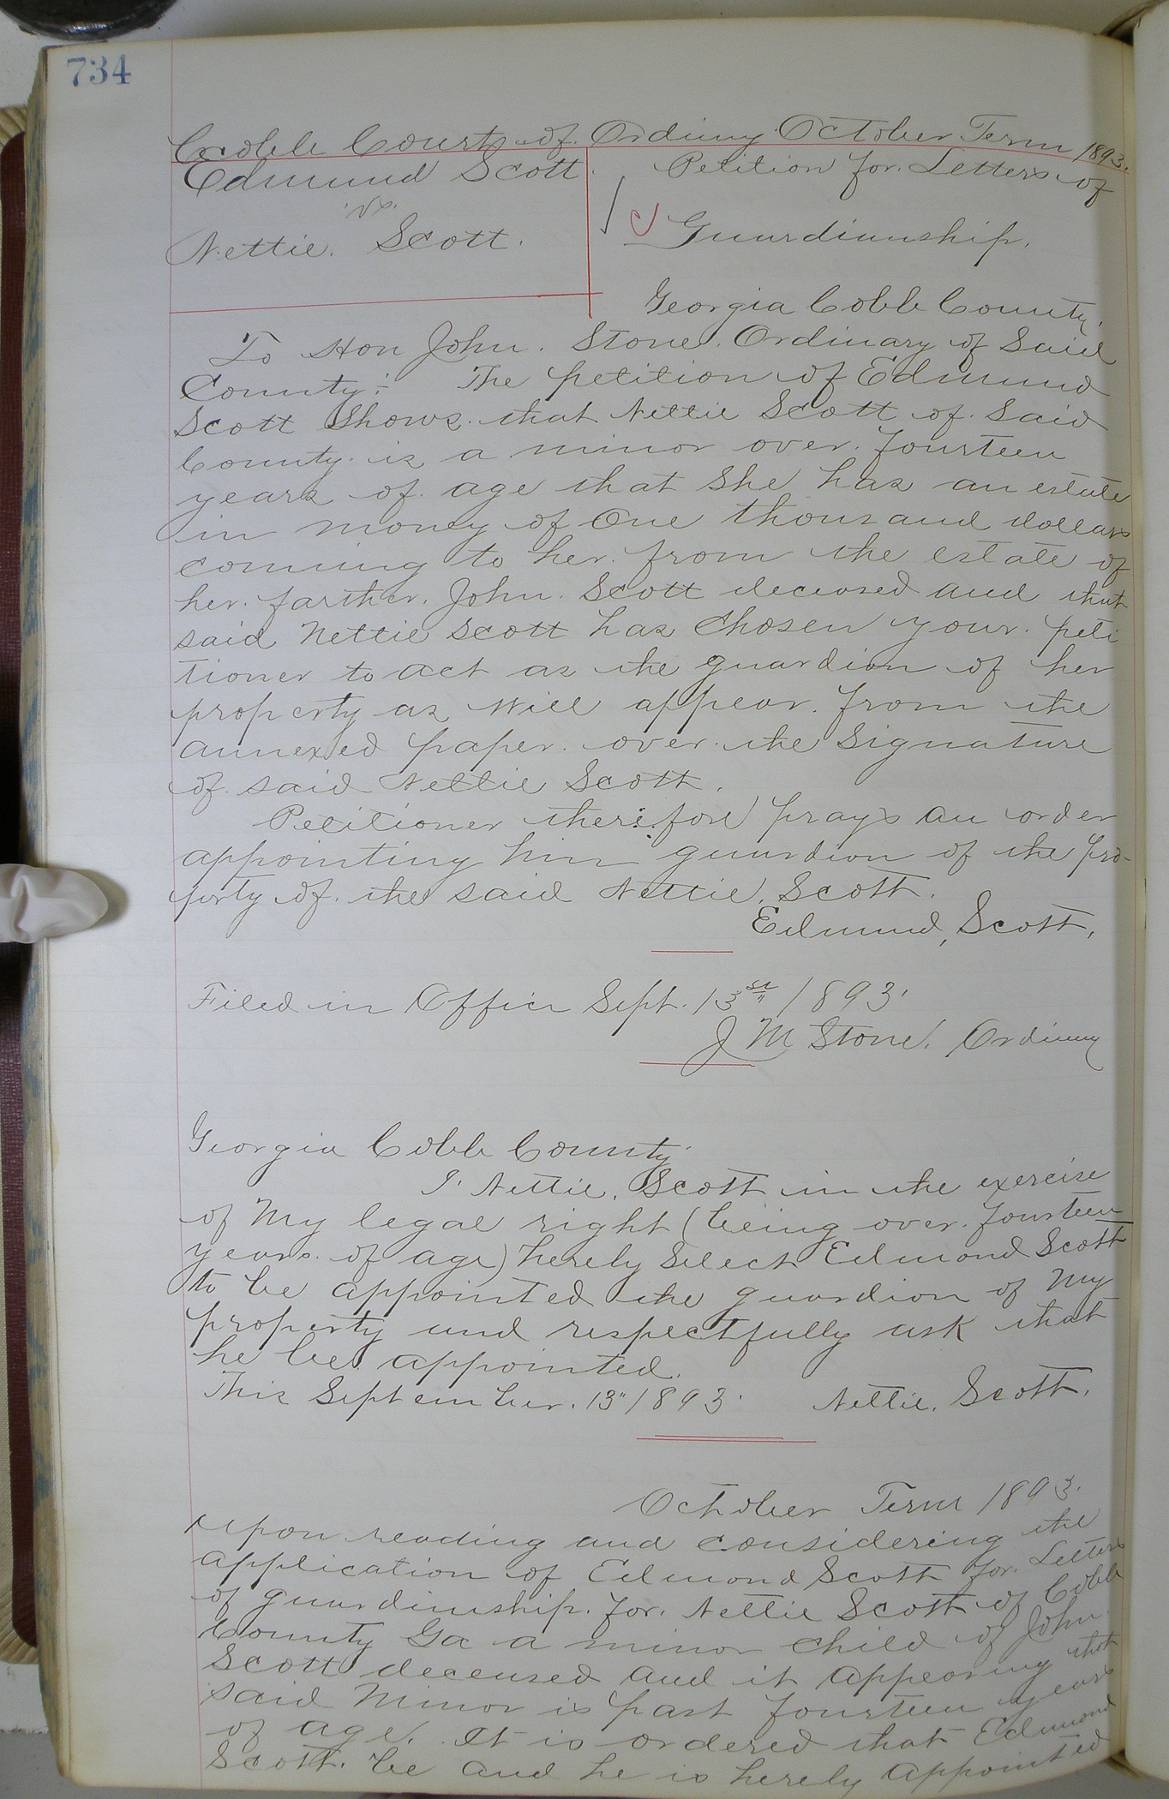 734
Cobb Court of Ordinay October Term 1893.
Edmund Scott. Petition for. Letters of
vs.
Nettie. Scott. Guardianship.
Georgia Cobb County.
To Hon John. Stone. Ordinary of Said
County:- The petition of Edmund
Scott Shows. that Nettie Scott of. Said
County. is a minor over. fourteen
years of. age that She has an estate
in money of One thousand dollars
coming to her. from the estate of
her. farther. John. Scott deceased and that
said Nettie Scott has Chosen your. peti
tioner to act as the guardian of her
property as will appear. from the
annexed paper. over. the Signature
of. said Nettie Scott.
Petitioner therefore prays an order
appointing him guardian of the pro-
perty of. the said Nettie. Scott.
Edmund, Scott.
Filed in Office Sept. 13 1893.
J M Stone. Ordinay
Georgia Cobb County.
I. Nettie. Scott in the exercise
of My legal right (being over. fourteen
years. of age) hereby Select Edmond Scott
to be appointed the guardian of My
property and respectfully ask that
he be appointed.
This September. 13" 1893. Nettie. Scott.
October Term 1893.
Upon reading and considering the
application of Edmond Scott for. Letters
of guardianship. for. Nettie Scott of Cobb
County Ga a minor child of John.
Scott deceased and it appearing that
said Minor is past fourteen years
of age. It is ordered that Edmond
Scott. be and he is hereby appointed